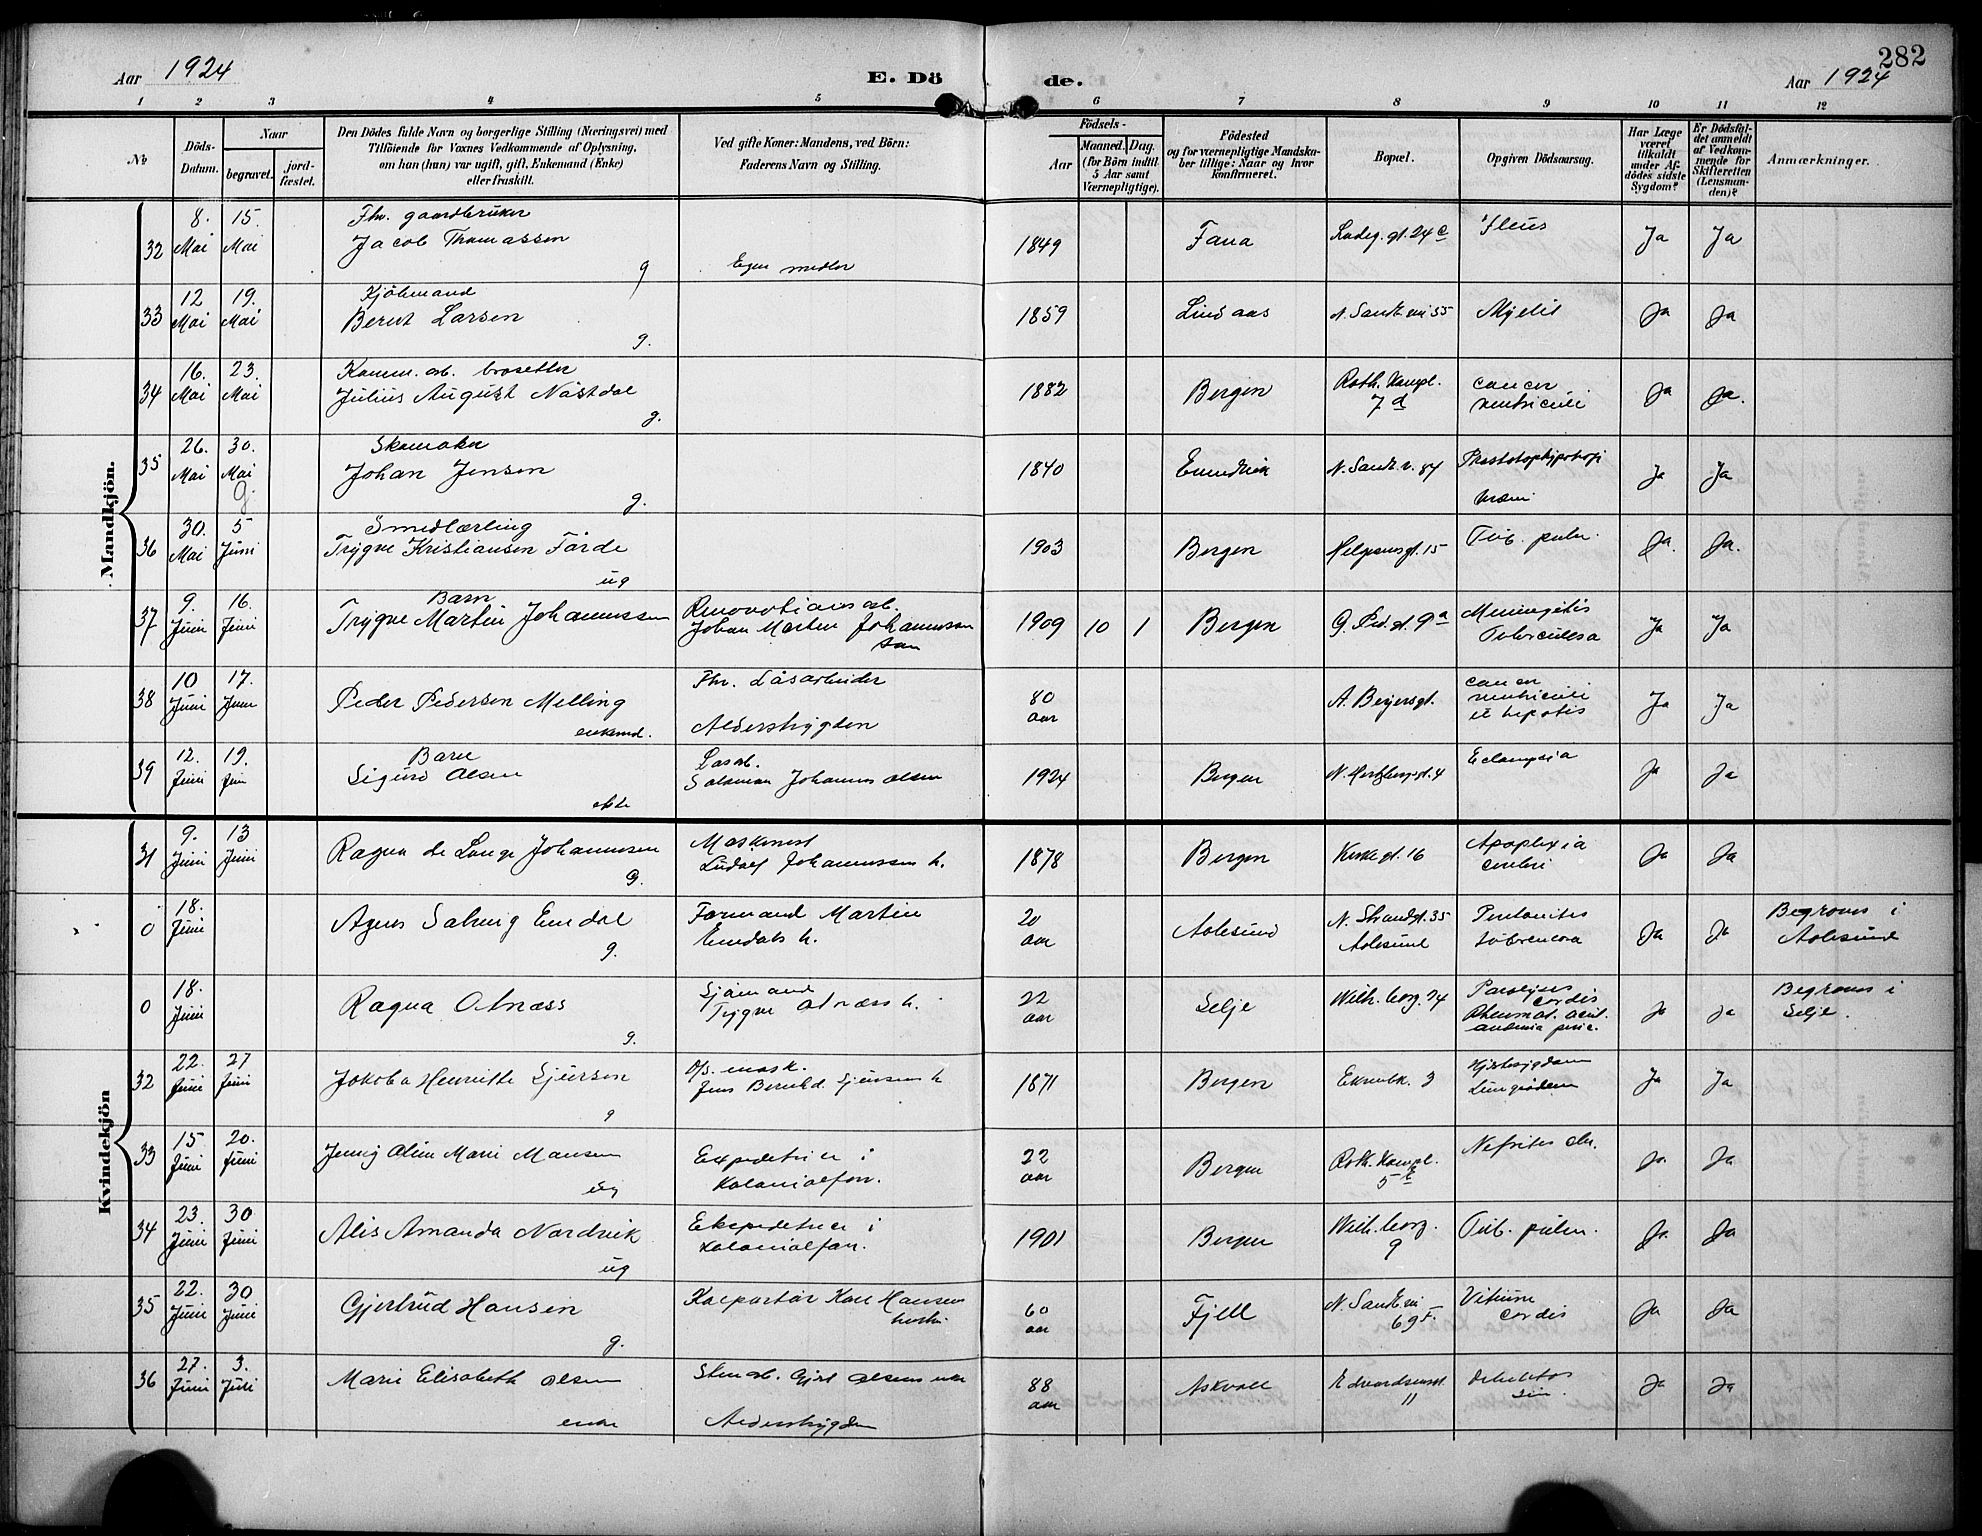 Aar 1924
E. Dö
de.
282
Aar 1924
1 2 3 4 5 6 7 8 9 10 11 12
No
Döds-
Datum.
Naar
begravet.
jord-
fæstet.
Den Dödes fulde Navn og borgerlige Stilling (Næringsvei) med
Tilföiende for Voxnes Vedkommende af Oplysning,
om han (hun) var ugift, gift, Enkemand (Enke)
eller fraskilt.
Ved gifte Koner: Mandens, ved Börn:
Faderens Navn og Stilling.
Födsels-
Aar
Maaned.
Dag.
(for Börn indtil
5 Aar samt
Værnepligtige).
Födested
og for værnepligtige Mandska-
ber tillige: Naar og hvor
konfirmeret.
Bopæl.
Opgiven Dödsaarsag.
Har Læge
været
tilkaldt
under Af-
dödes sidste
Sygdom?
Er Dödsfal-
det anmeldt
af Vedkom-
mende for
Skifteretten
(Lensman-
den)?
Anmærkninger.
Mandkjön.
32 8. Mai 15. Mai
Fhv. gaardbruker
Jacob Thomassen
g
Egne midler
1849 Fana Ladeg. gt. 24 c Ileus Ja Ja
33 12 Mai 19. Mai
Kjöbmand
Bernt Larsen
g.
1859 Lindaas N. Sandk.vei 55 Myelit Ja Ja
34 16. Mai 23. Mai
Komm. arb. brosetter
Julius August Nöstdal
g.
1882 Bergen Roth. kompl. 7 d cancer ventriculi Ja Ja.
35 26. Mai 30. Mai
g.
Skomaker
Johan Jensen
g.
1840 N. Sandk. v. 84 Ja Ja
36 30. Mai 5 Juni
Smedlærling
Trygve Kristiansen Förde
ug
1903 Bergen Helgesensgt. 15 Tub. pulm. Ja. Ja.
37 9. Juni 16. Juni
Barn
Trygve Martin Johannessen
Renovationsarb.
Johan Martin Johannessen
sön
1909 10 1 Bergen G. Ped. gt. 9 a Meningitis Tuberculosa Ja Ja
38 10 Juni 17. Juni
Peder Pedersen Melling
enkemd.
Fhv. Lösarbeider
Alderstrygden
80 aar A. Beyersgt. cancer ventriculi et hepatis Ja Ja
39 12. Juni 19. Juni
Barn
Sigurd Olsen
ekte
Lösarb.
Salomon Johannes Olsen
1924 Bergen N. Hertzbergsgt. 4 Eclampsia Ja Ja
Kvindekjön
31 9. Juni 13 Juni
Ragna de Lange Johannesen
g.
Maskinist
Ludolf Johannessen h.
1878 Bergen Kirkegt. 16 Apoplexia cerebri Ja Ja
0 18. Juni
Agnes Solveig Emdal
g.
Formand Martin
Emdals h.
20 aar Aalesund N. Strandgt. 35 Aalesund Peritonitis tuberculosa Ja Ja
Begraves i
Aalesund
0 18. Juni
Ragna Otnæss
g.
Sjömand
Trygve Otnæss h.
22 aar Selje Wilh. Georg. 24 Paralyses cordis Rheumat. acut. anämia pernic. Ja Ja
Begraves i
Selje.
32 22. Juni 27 Juni
Jakoba Henriette Sjursen
g
D/s. mask.
Jens Bernhd. Sjursens h
1871 Bergen Ekrenbk. 3 Hjertesygdom Lungeödem Ja Ja
33 15 Juni 20. Juni
Jenny Oline Marie Monsen
ug
Expeditrice i
kolonialforr.
22 aar Bergen Roth. kompl. 5 Nefritis chr. Ja. Ja
34 23. Juni 30 Juni
Alis Amanda Nordvik
ug
Ekspeditrice i
kolonialforr.
1901 Bergen Wilh. Georg. 9 Tub. pulm. Ja. Ja
35 22. Juni 30 Juni
Gjertrud Hansen
g.
Kolportör Karl Hansens
hustru
60 aar Fjell N. Sandk.vei 69 F Vitium cordis Ja Ja
36 27. Juni 3. Juli
Marie Elisabeth Olsen
enke
Stenarb. Gjert Olsens enke
Alderstrygden
88 aar Askvoll Edvardsensgt. 11 debilitas sen. Ja Ja